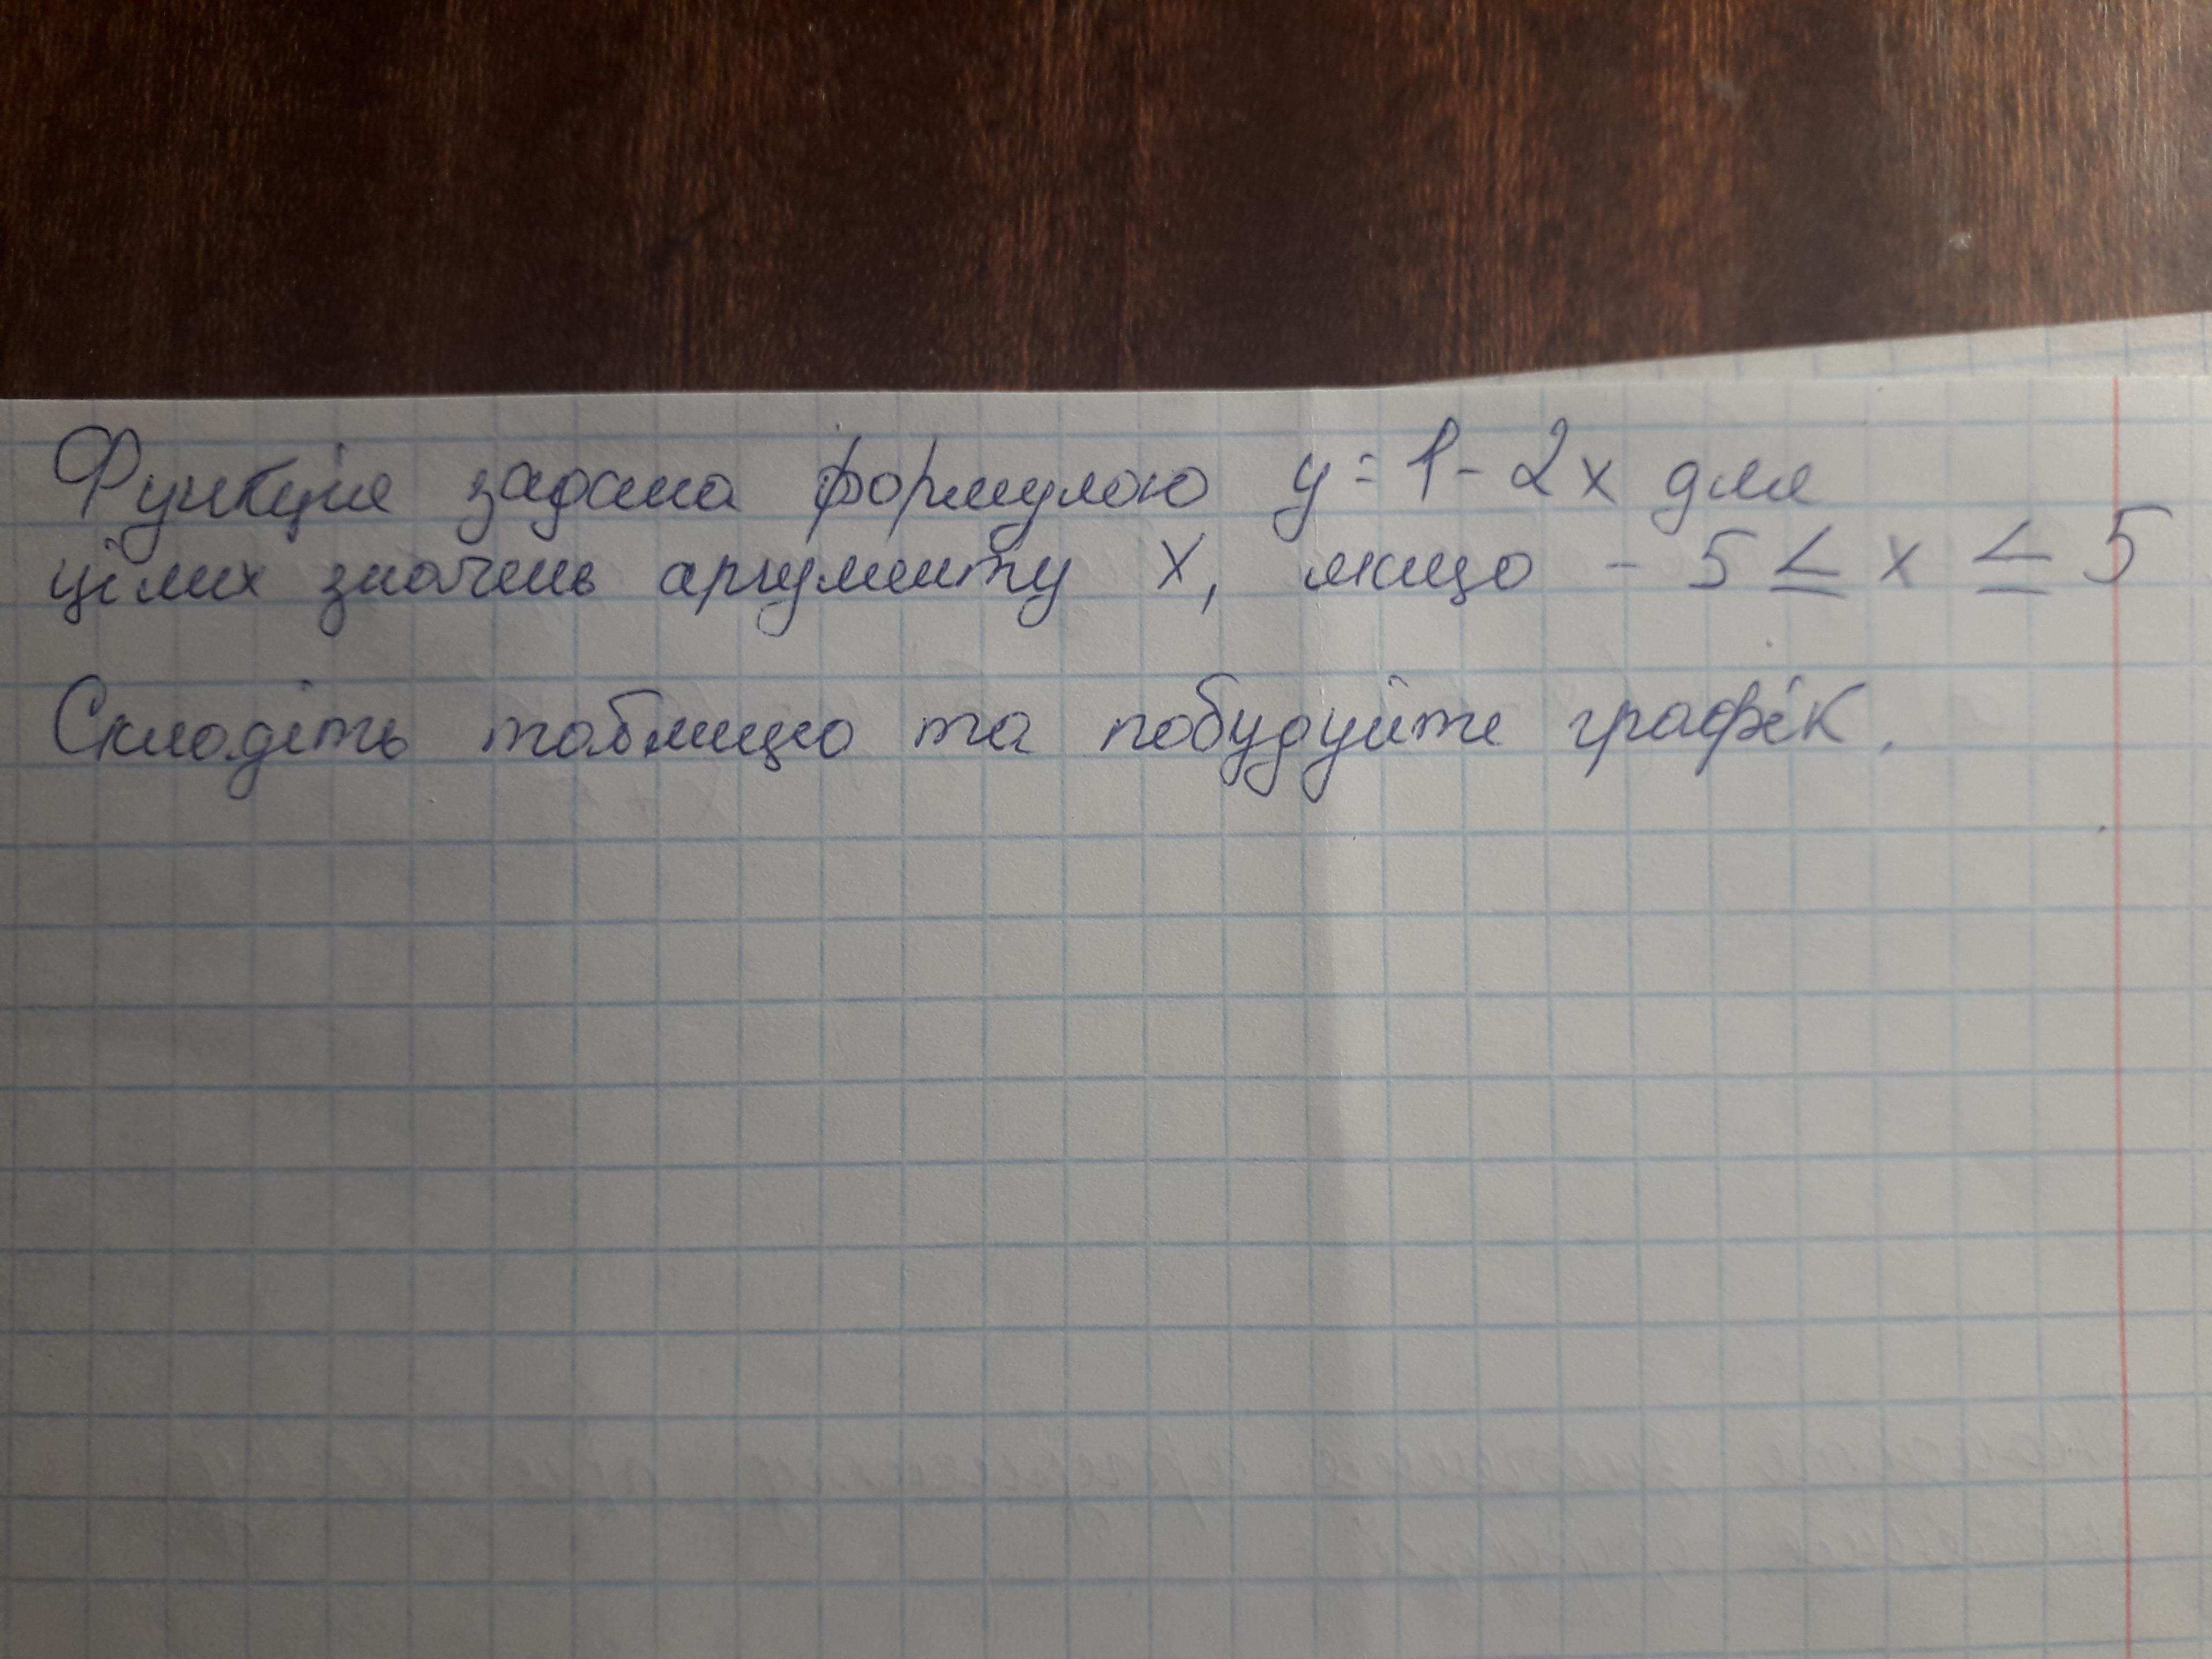 Функція задана формулою y = 1 - 2x для
цілих значень аргументу x, якщо - 5 ≤ x ≤ 5
Складіть таблицю та побудуйте графік.